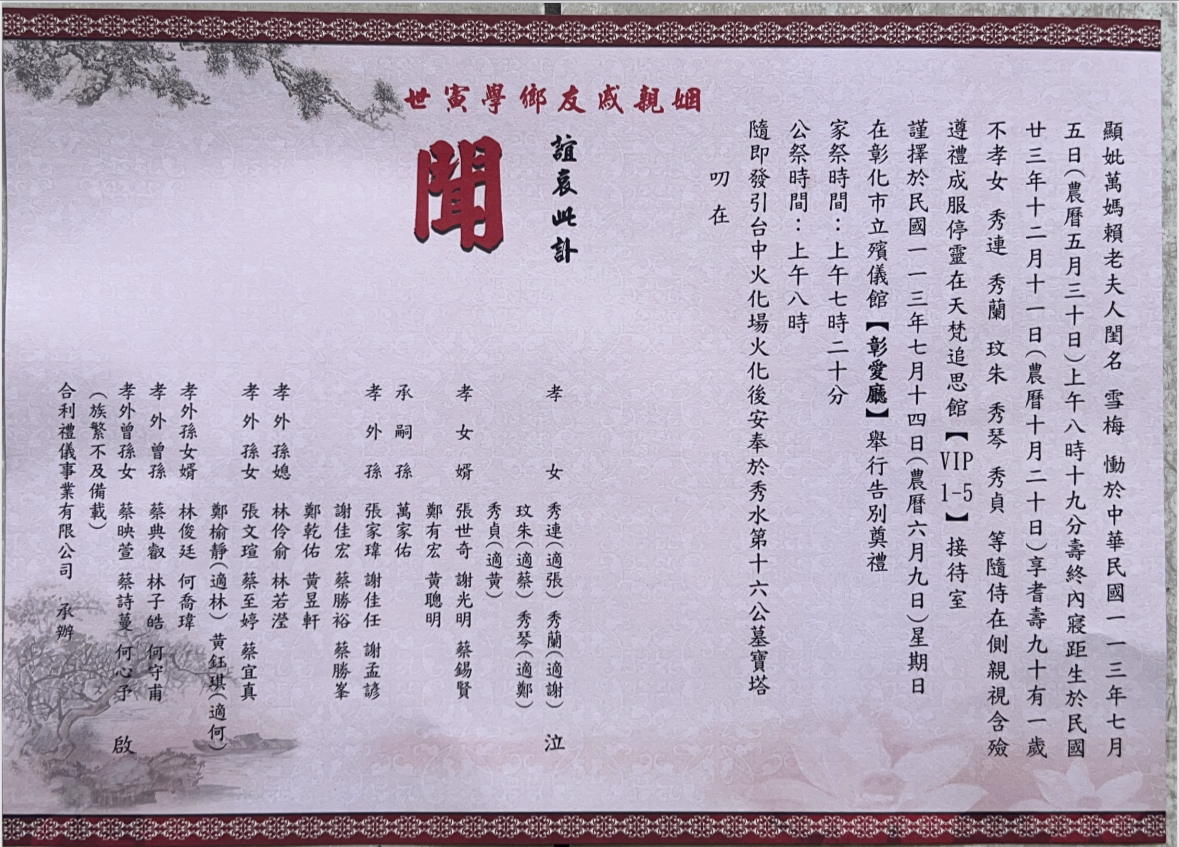 顯妣萬媽賴老夫人閨名 雪梅 慟於中華民國一一三年七月
五日(農曆五月三十日)上午八時十九分壽終內寢距生於民國
廿三年十二月十一日(農曆十月二十日)享耆壽九十有一歲
不孝女 秀連 秀蘭 玟朱 秀琴 秀貞 等隨侍在側親視含殮
遵禮成服停靈在天梵追思館【VIP1-5】接待室
謹擇於民國一一三年七月十四日(農曆六月九日)星期日
在彰化市立殯儀館【彰愛廳】舉行告別奠禮
家祭時間：上午七時二十分
公祭時間：上午八時
隨即發引台中火化場火化後安奉於秀水第十六公墓寶塔
叨在
姻親戚友鄉學寅世
誼哀此訃
聞
孝女 秀連(適張) 秀蘭(適謝) 泣
玟朱(適蔡) 秀琴(適鄭)
秀貞(適黃)
孝女婿 張世奇 謝光明 蔡錫賢
鄭有宏 黃聰明
承嗣孫 萬家佑
孝外孫 張家瑋 謝佳任 謝孟諺
謝佳宏 蔡勝裕 蔡勝峯
鄭乾佑 黃昱軒
孝外孫媳 林伶俞 林若瀅
孝外孫女 張文瑄 蔡至婷 蔡宜真
鄭榆靜(適林) 黃鈺琪(適何)
孝外孫女婿 林俊廷 何喬瑋
孝外曾孫 蔡典叡 林子皓 何守甫
孝外曾孫女 蔡映萱 蔡詩蔓 何心予 啟
(族繁不及備載)
合利禮儀事業有限公司 承辦